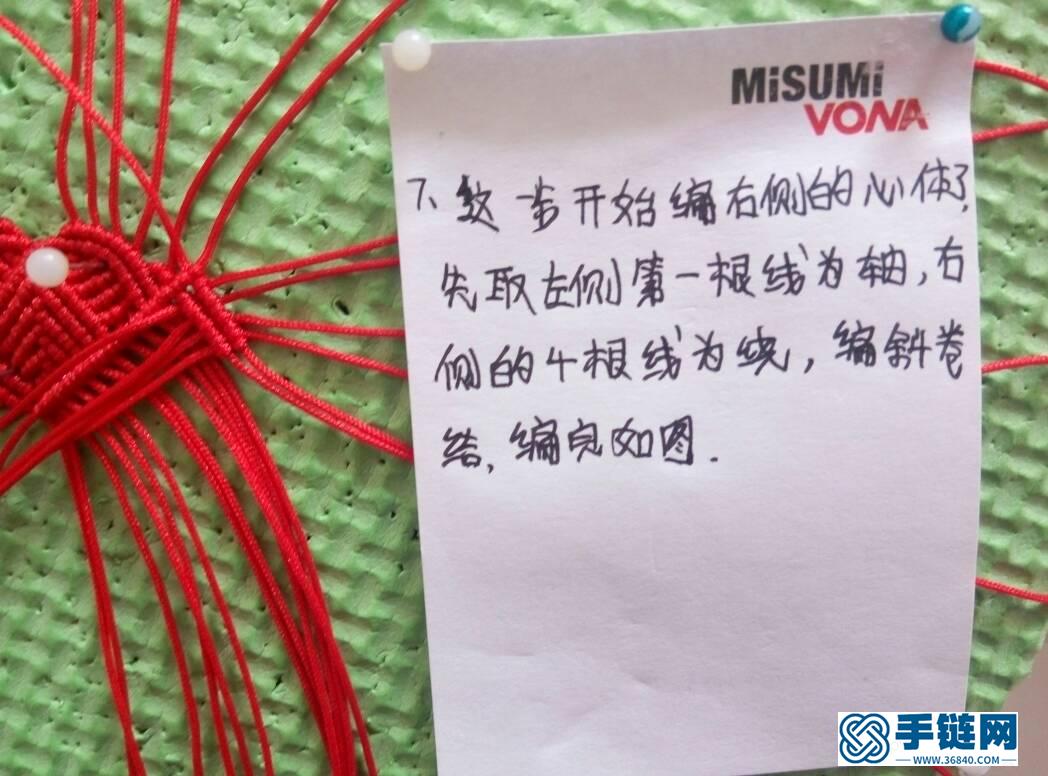 MiSUMi
VONA
7、这一步开始编右侧的心体了,
先取左侧第一根线为轴,右
侧的4根线为绕,编斜卷
结,编完如图.
手链网
WWW.36840.COM